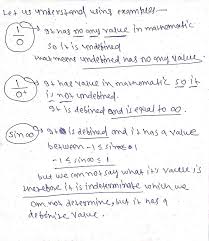 Let us understand using examples—
1/0 → It has no any value in mathematic
So it is undefined
that means undefined has no any value.
1/0⁺ → It has value in mathematic so it
is not undefined.
It is defined and is equal to ∞.
sin∞ → It is defined and it has a value
between -1 ≤ sin∞ ≤ 1
-1 ≤ sin∞ ≤ 1
but we can not say what it's value is
therefore it is indeterminate which we
can not determine, but it has a
definite value.